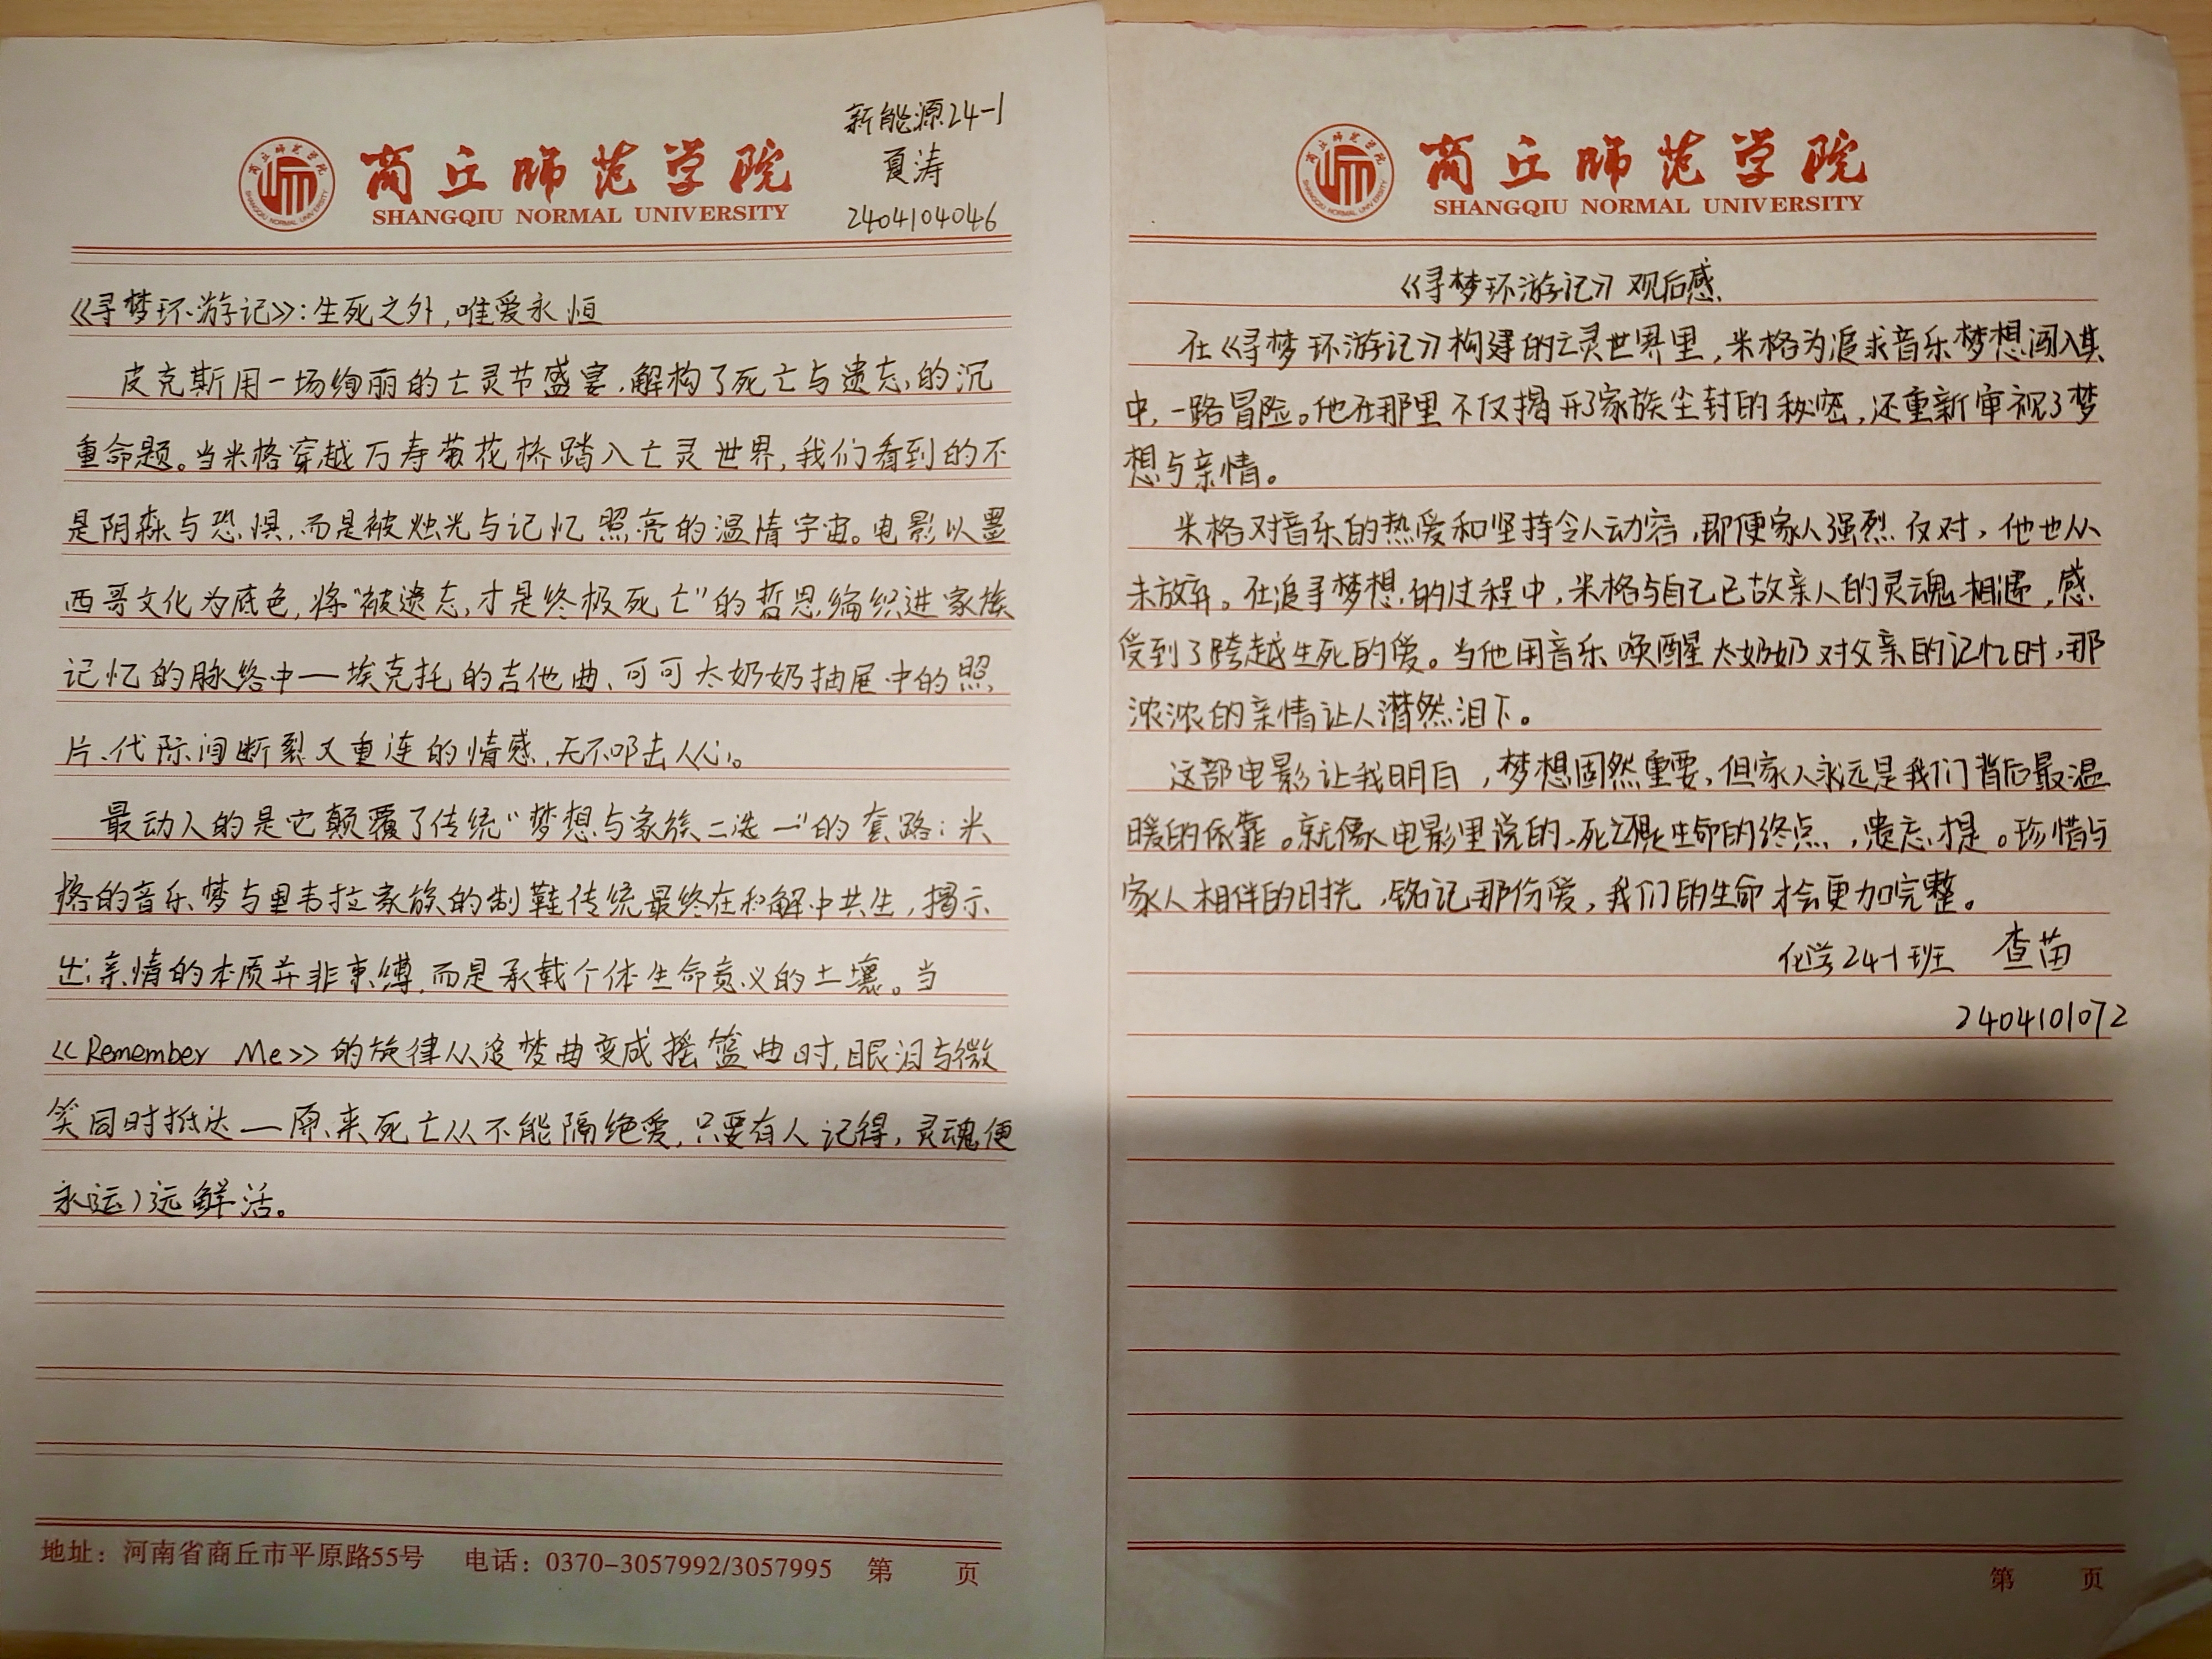 新能源24-1
夏涛
2404104046
商丘师范学院
SHANGQIU NORMAL UNIVERSITY
《寻梦环游记》:生死之外,唯爱永恒
皮克斯用一场绚丽的亡灵节盛宴,解构了死亡与遗忘的沉
重命题。当米格穿越万寿菊花桥踏入亡灵世界,我们看到的不
是阴森与恐惧,而是被烛光与记忆照亮的温情宇宙。电影以墨
西哥文化为底色,将“被遗忘才是终极死亡”的哲思编织进家族
记忆的脉络中—埃克托的吉他曲、可可太奶奶抽屉中的照
片、代际间断裂又重连的情感,无不叩击人心。
最动人的是它颠覆了传统“梦想与家族二选一”的套路:米
格的音乐梦与里韦拉家族的制鞋传统最终在和解中共生,揭示
出亲情的本质并非束缚,而是承载个体生命意义的土壤。当
《Remember Me》的旋律从追梦曲变成摇篮曲时,眼泪与微
笑同时抵达—原来死亡从不能隔绝爱,只要有人记得,灵魂便
永远鲜活。
地址:河南省商丘市平原路55号 电话:0370-3057992/3057995 第 页
商丘师范学院
SHANGQIU NORMAL UNIVERSITY
《寻梦环游记》观后感
在《寻梦环游记》构建的亡灵世界里,米格为追求音乐梦想闯入其
中,一路冒险。他在那里不仅揭开了家族尘封的秘密,还重新审视了梦
想与亲情。
米格对音乐的热爱和坚持令人动容,即便家人强烈反对,他也从
未放弃。在追寻梦想的过程中,米格与自己已故亲人的灵魂相遇,感
受到了跨越生死的爱。当他用音乐唤醒太奶奶对父亲的记忆时,那
浓浓的亲情让人潸然泪下。
这部电影让我明白,梦想固然重要,但家人永远是我们背后最温
暖的依靠。就像电影里说的,死亡不是生命的终点,遗忘才是。珍惜与
家人相伴的时光,铭记那份爱,我们的生命才会更加完整。
化学24-1班 查苗
2404101072
第 页